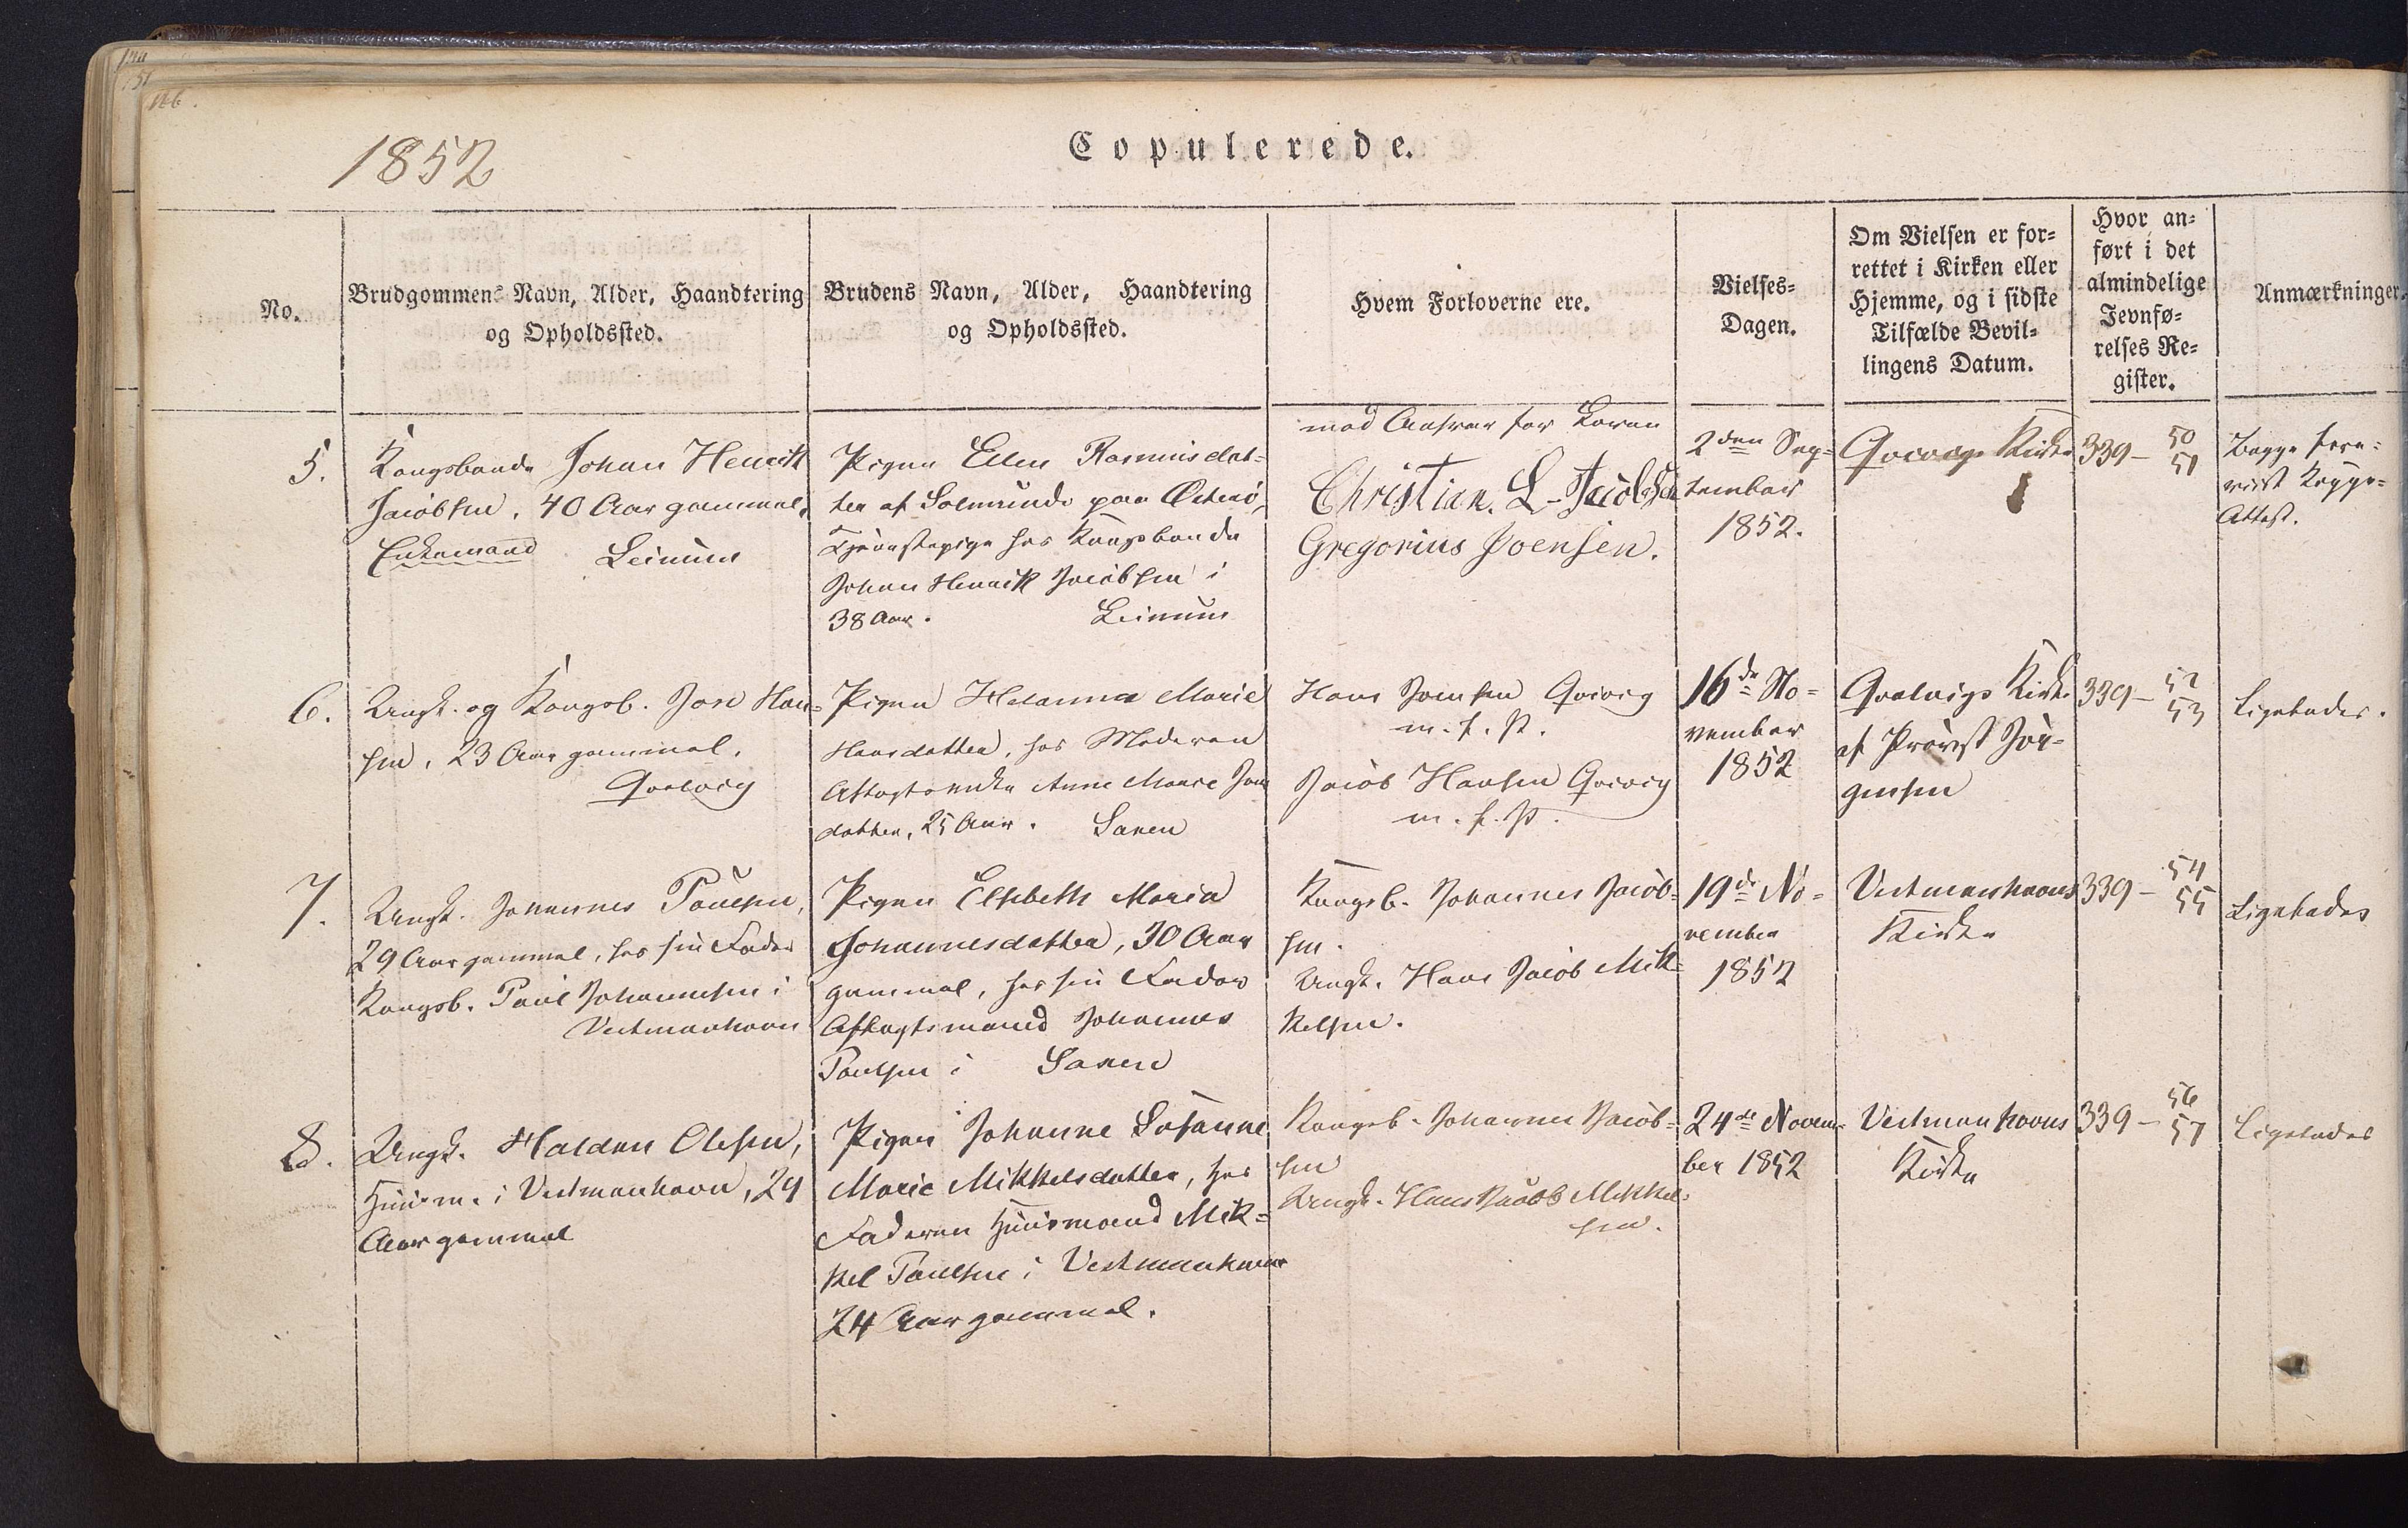 146.
1852
Copulerede.
No.
Brudgommens Navn, Alder, Haandtering
og Opholdssted.
Brudens Navn, Alder, Haandtering
og Opholdssted.
Hvem Forloverne ere.
Vielses-
Dagen.
Om Vielsen er for-
rettet i Kirken eller
Hjemme, og i sidste
Tilfælde Bevil-
lingens Datum.
Hvor an-
ført i det
almindelige
Jevnfø-
relses Re-
gister.
Anmærkninger.
5.
Kongsbonde Johan Henrik
Jacobsen, 40 Aar gammel,
Enkemand Leinum
Pigen Ellen Rasmusdat-
ter af Solmunde paa Østerø,
Tjenestepige hos Kongsbonde
Johan Henrik Jacobsen i
38 Aar. Leinum
med Ansvar for Loven
Christian. L. Jacobsen
Gregorius Joensen.
2den Sep-
tember
1852.
Qvivigs Kirke
339- 50
51
Begge fore-
viist Koppe-
Attest.
6.
Ungk. og Kongsb. Jon Han-
sen, 23 Aar gammel.
Qvalvig
Pigen Helanna Marie
Hansdatter, hos Moderen
Aftægtsenke Anne Marie Jons
datter, 25 Aar. Saxen
Hans Joensen Qvivig
m. f. P.
Jacob Hansen Qvivig
m. f. P.
16de No-
vember
1852
Qvalvigs Kirke
af Provst Jør-
gensen
339- 52
53
Ligeledes.
7.
Ungk. Johannes Poulsen,
29 Aar gammel, hos sin Fader
Kongsb. Poul Johannesen i
Vestmanhavn
Pigen Elsebeth Maria
Johannesdatter, 30 Aar
gammel, hos sin Fader
Aftægtsmand Johannes
Poulsen i Saxen
Kongsb. Johannes Jacob-
sen.
Ungk. Hans Jacob Mik-
kelsen.
19de No-
vember
1852
Vestmanhavns
Kirke
339- 54
55
Ligeledes
8.
Ungk. Haldan Olesen,
Huusm. i Vestmanhavn, 29
Aar gammel
Pigen Johanne Susanne
Marie Mikkelsdatter, hos
Faderen Huusmand Mik-
kel Poulsen i Vestmanhavn
24 Aar gammel.
Kongsb. Johannes Jacob-
sen
Ungk. Hans Jacob Mikkel-
sen.
24de Novem-
ber 1852
Vestmanhavns
Kirke
339- 56
57
Ligeledes